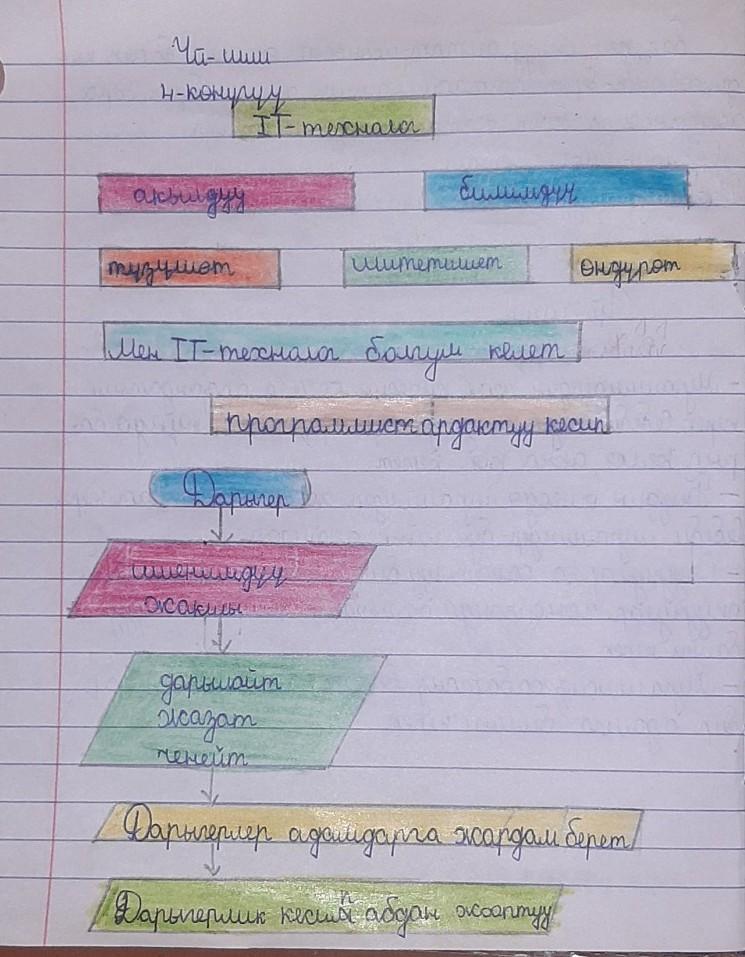 Үй-иши
4-көнүгүү
IT-технала
акылдуу билимдүү
түзүшөт иштетишет өндүрөт
Мен IT-технала болгум келет
программист ардактуу кесип
Дарыгер
ишенимдүү
жакшы
дарылайт
жазат
ченейт
Дарыгерлер адамдарга жардам берет
Дарыгерлик кесип абдан жооптуу